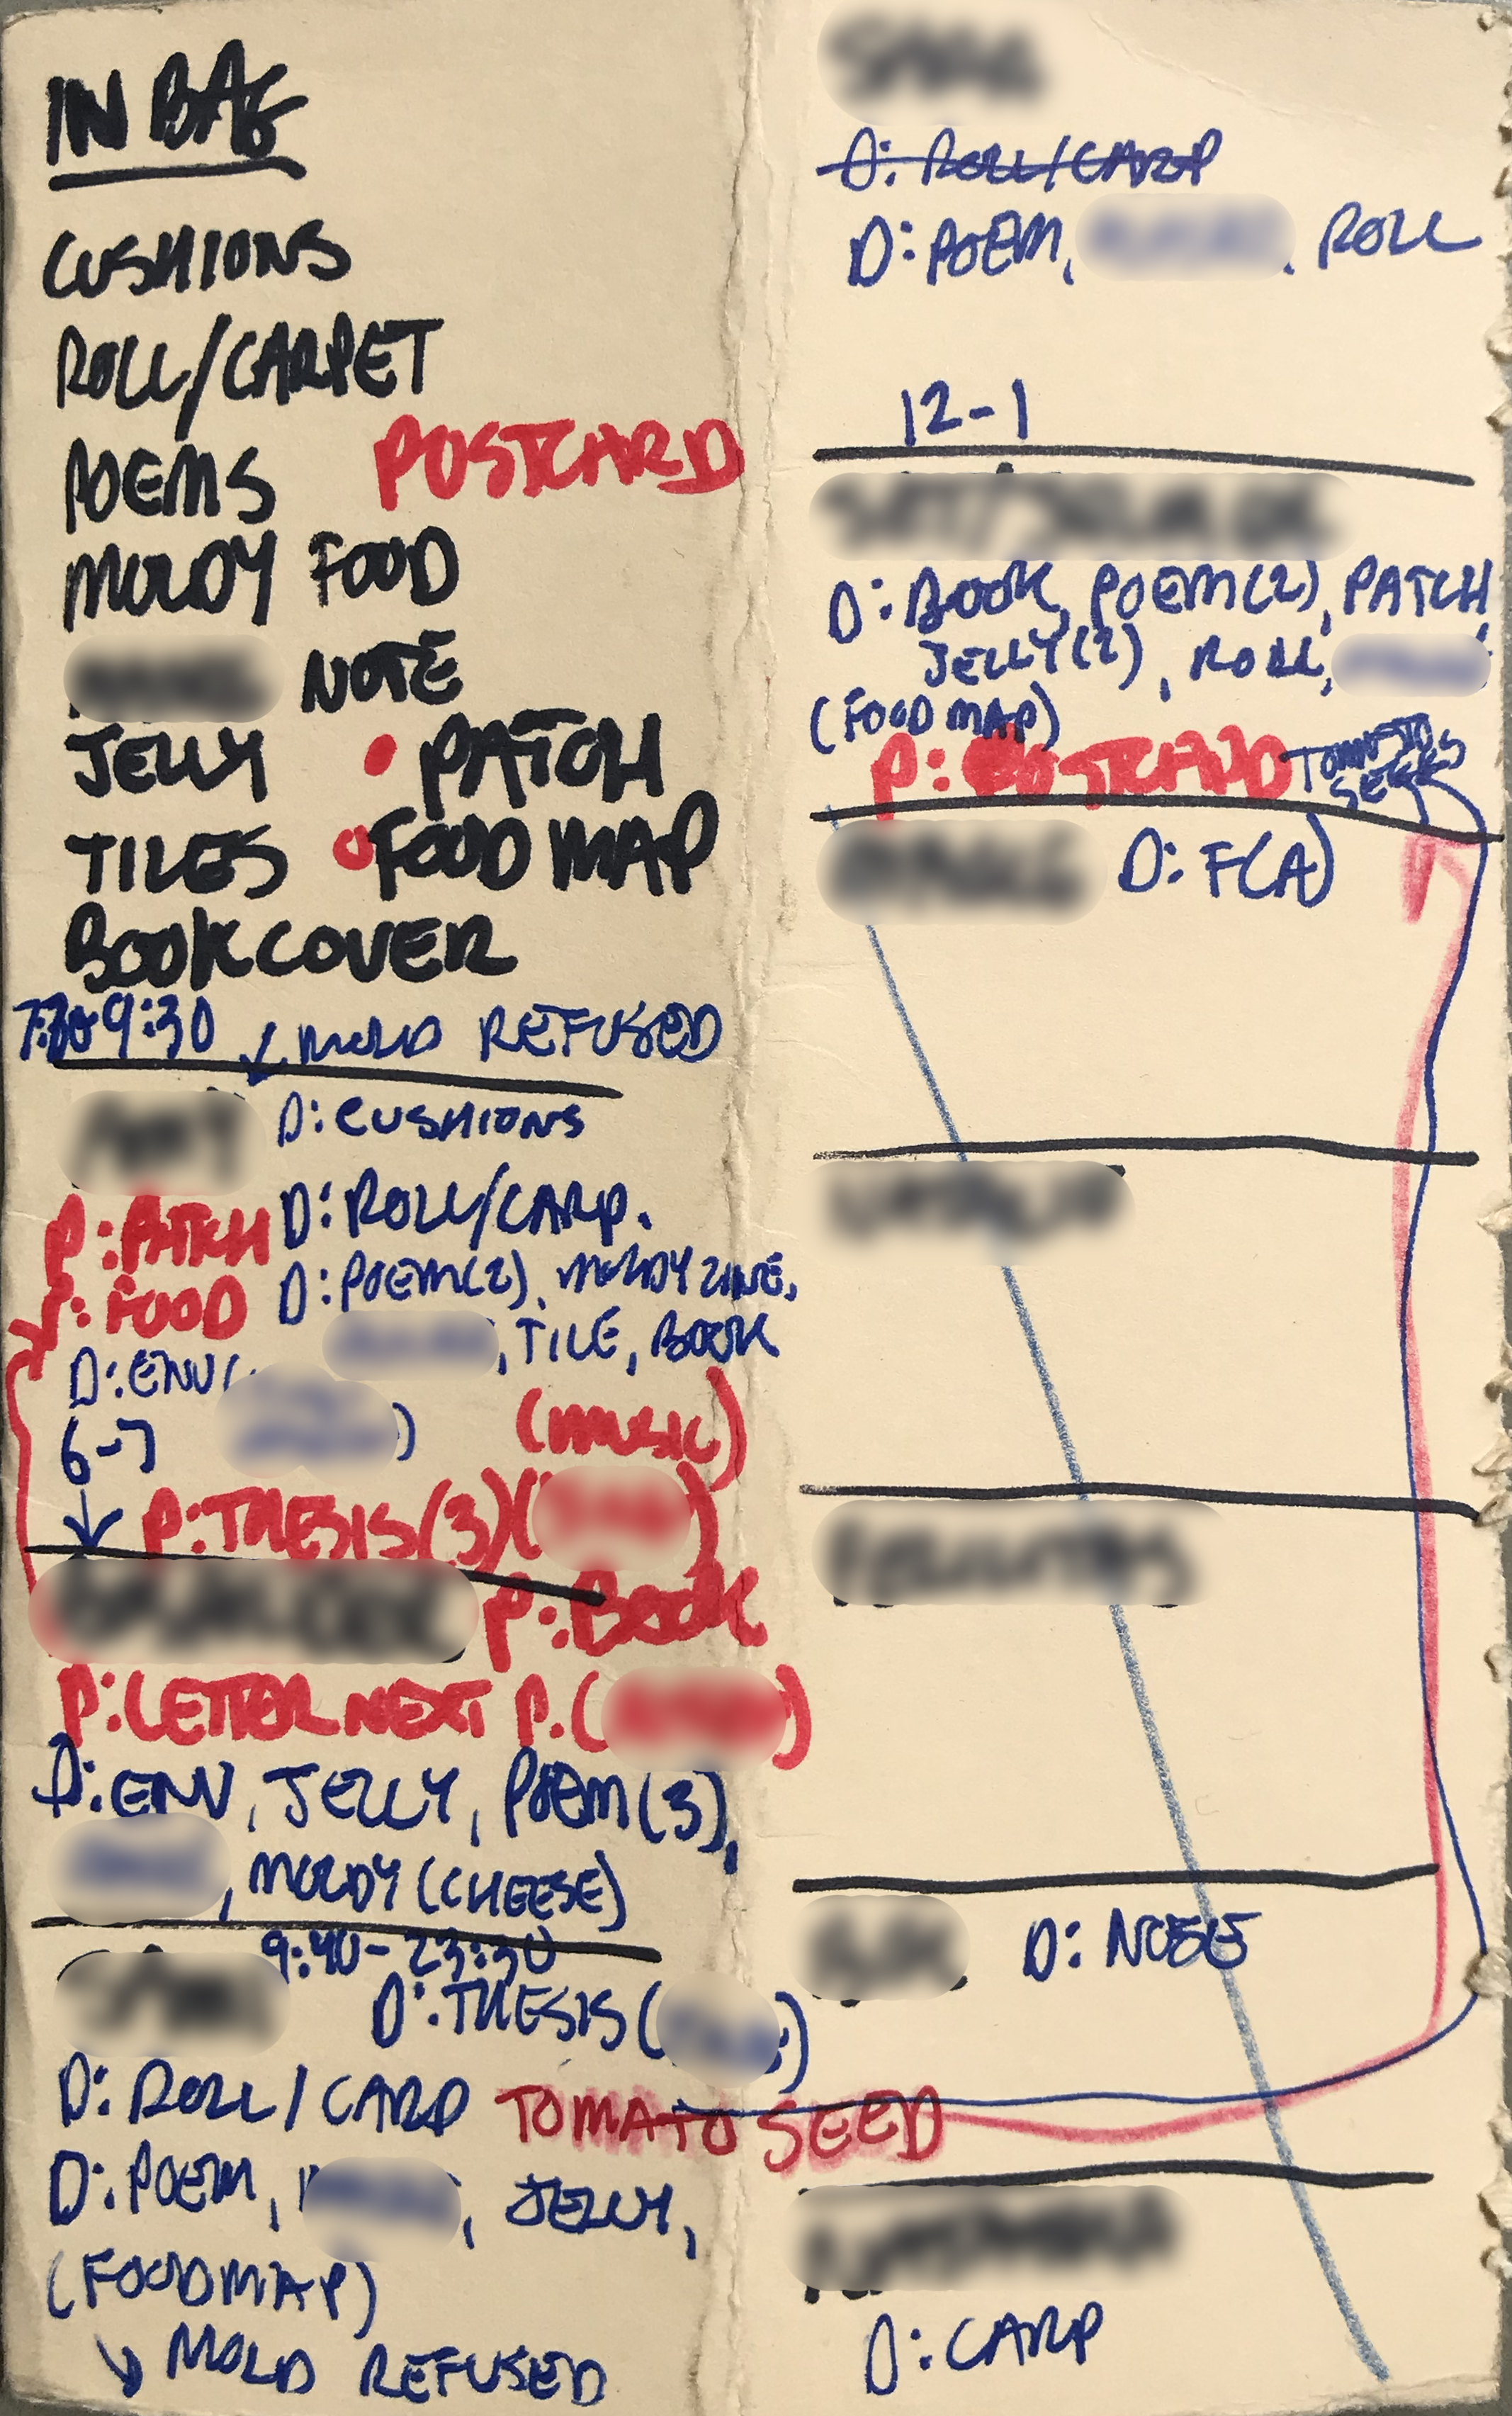 IN BAG
CUSHIONS
ROLL/CARPET
POEMS POSTCARD
MOLDY FOOD
NOTE
JELLY • PATCH
TILES FOOD MAP
BOOKCOVER
9:30 MOLD REFUSED
D: CUSHIONS
P: PATCH D: ROLL/CARP.
P: FOOD D: POEM(2), MOLDY ZINE,
, TILE, BOOK
D: ENV(
6-7 )
(MUSIC)
P: THESIS(3)( )
P: BOOK
P: LETTER NEXT P. ( )
D: ENV, JELLY, POEM(3),
, MOLDY (CHEESE)
9:40-23:30
D: THESIS ( )
D: ROLL/CARP TOMATO SEED
D: POEM, , JELLY,
(FOODMAP)
MOLD REFUSED
D: ROLL/CARP
D: POEM, , ROLL
12-1
D: BOOK, POEM(2), PATCH,
JELLY(2), ROLL,
(FOOD MAP)
P: POSTCARD TOMATO
SEEDS
D: F(A)
D:
D: CARP